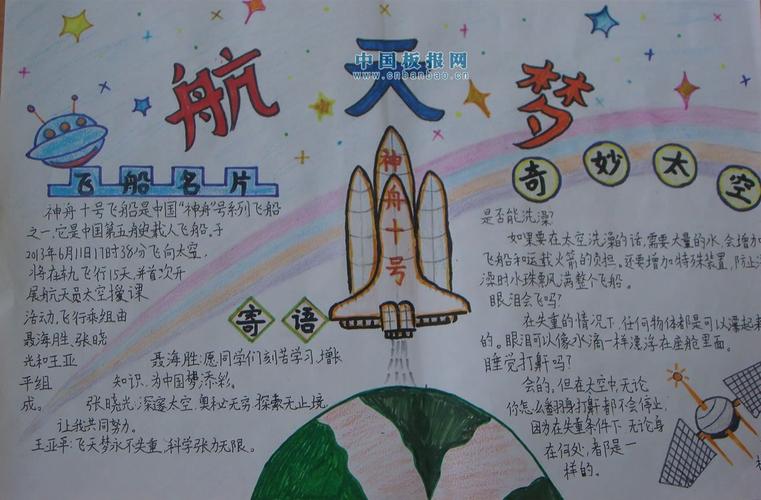 航天梦
中国板报网
www.cnbanbao.cn
飞船名片
神舟十号飞船是中国"神舟"号系列飞船
之一,它是中国第五艘载人飞船。于
2013年6月11日17时38分飞向太空,
将在轨飞行15天,并首次开
展航天员太空授课
活动,飞行乘组由
聂海胜、张晓
光和王亚
平组
成。
神舟十号
寄语
聂海胜:愿同学们刻苦学习,增长
知识,为中国梦添彩。
张晓光:深邃太空,奥秘无穷,探索无止境,
让我共同努力。
王亚平:飞天梦永不失重,科学张力无限。
奇妙太空
是否能洗澡?
如果要在太空洗澡的话,需要大量的水,会增加
飞船和运载火箭的负担,还要增加特殊装置,防止洗
澡时水珠飘满整个飞船。
眼泪会飞吗?
在失重的情况下,任何物体都是可以漂起来
的。眼泪可以像水滴一样漂浮在座舱里面。
睡觉打鼾吗?
会的,但在太空中,无论
你怎么翻身打鼾都不会停止,
因为在失重条件下,无论身
在何处,都是一
样的。